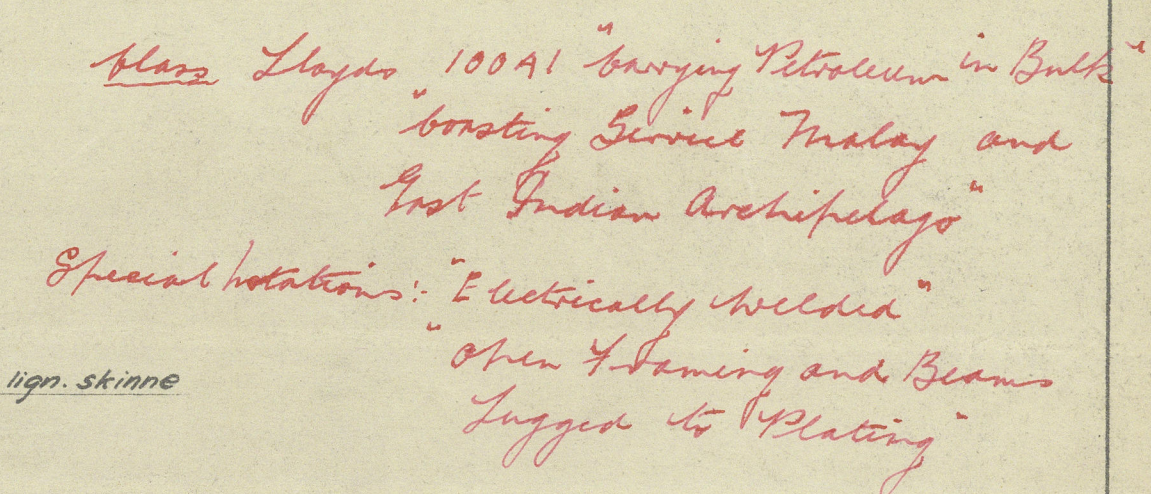 Class Lloyds 100A1 "Carrying Petroleum in Bulk"
"Coasting Service Malay and
East Indian Archipelago"
Special Notations:- "Electrically Welded"
"Open Framing and Beams
lign. skinne
Lugged to Plating"